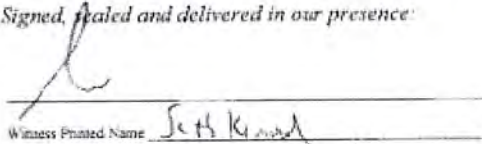 Signed, sealed and delivered in our presence:
Witness Printed Name Seth